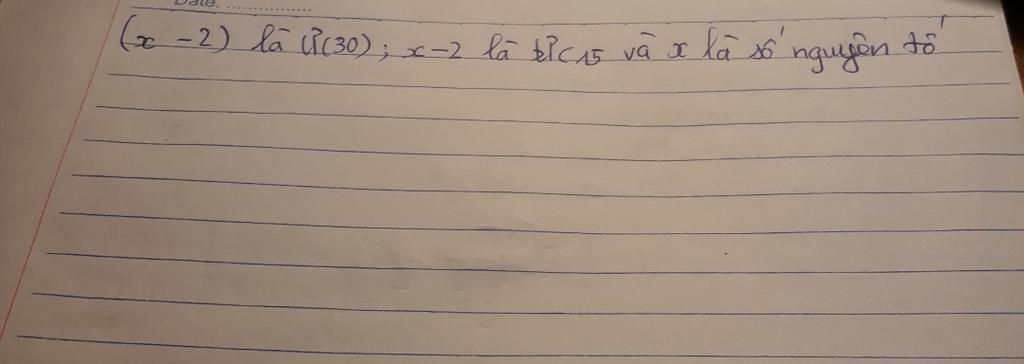 Date. ................
(x - 2) là Ư(30) ; x - 2 là ƯC 15 và x là số nguyên tố